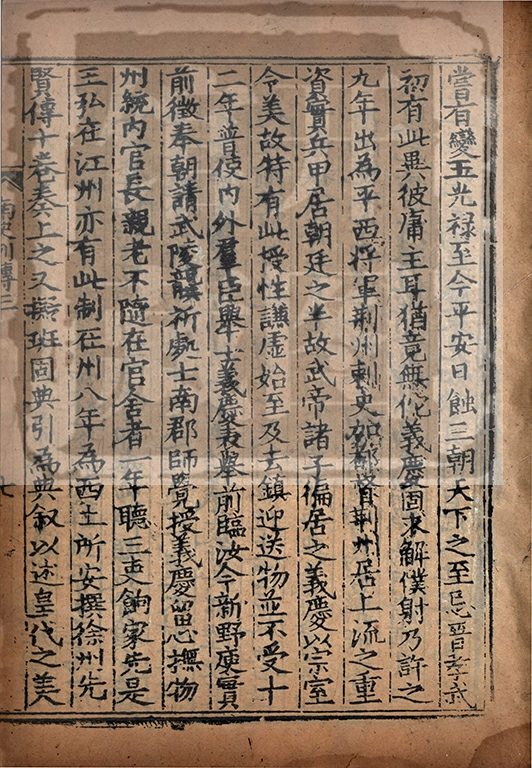 嘗有變五光祿至今平安日蝕三朝天下之至忌晉孝武
初有此異彼庸主耳猶竟無佗義慶固求解僕射乃許之
九年出為平西將軍荊州刺史加都督荊州居上流之重
資實兵甲居朝廷之半故武帝諸子徧居之義慶以宗室
令美故特有此授性謙虛始至及去鎮迎送物並不受十
二年普使內外羣臣舉士義慶表舉前臨汝令新野庾實
前徵奉朝請武陵龔祈處士南郡師覺授義慶留心撫物
州統內官長親老不隨在官舍者一年聽三吏餉家先是
王弘在江州亦有此制在州八年為西土所安撰徐州先
賢傳十卷奏上之又擬班固典引為典敘以述皇代之美
南史列傳三